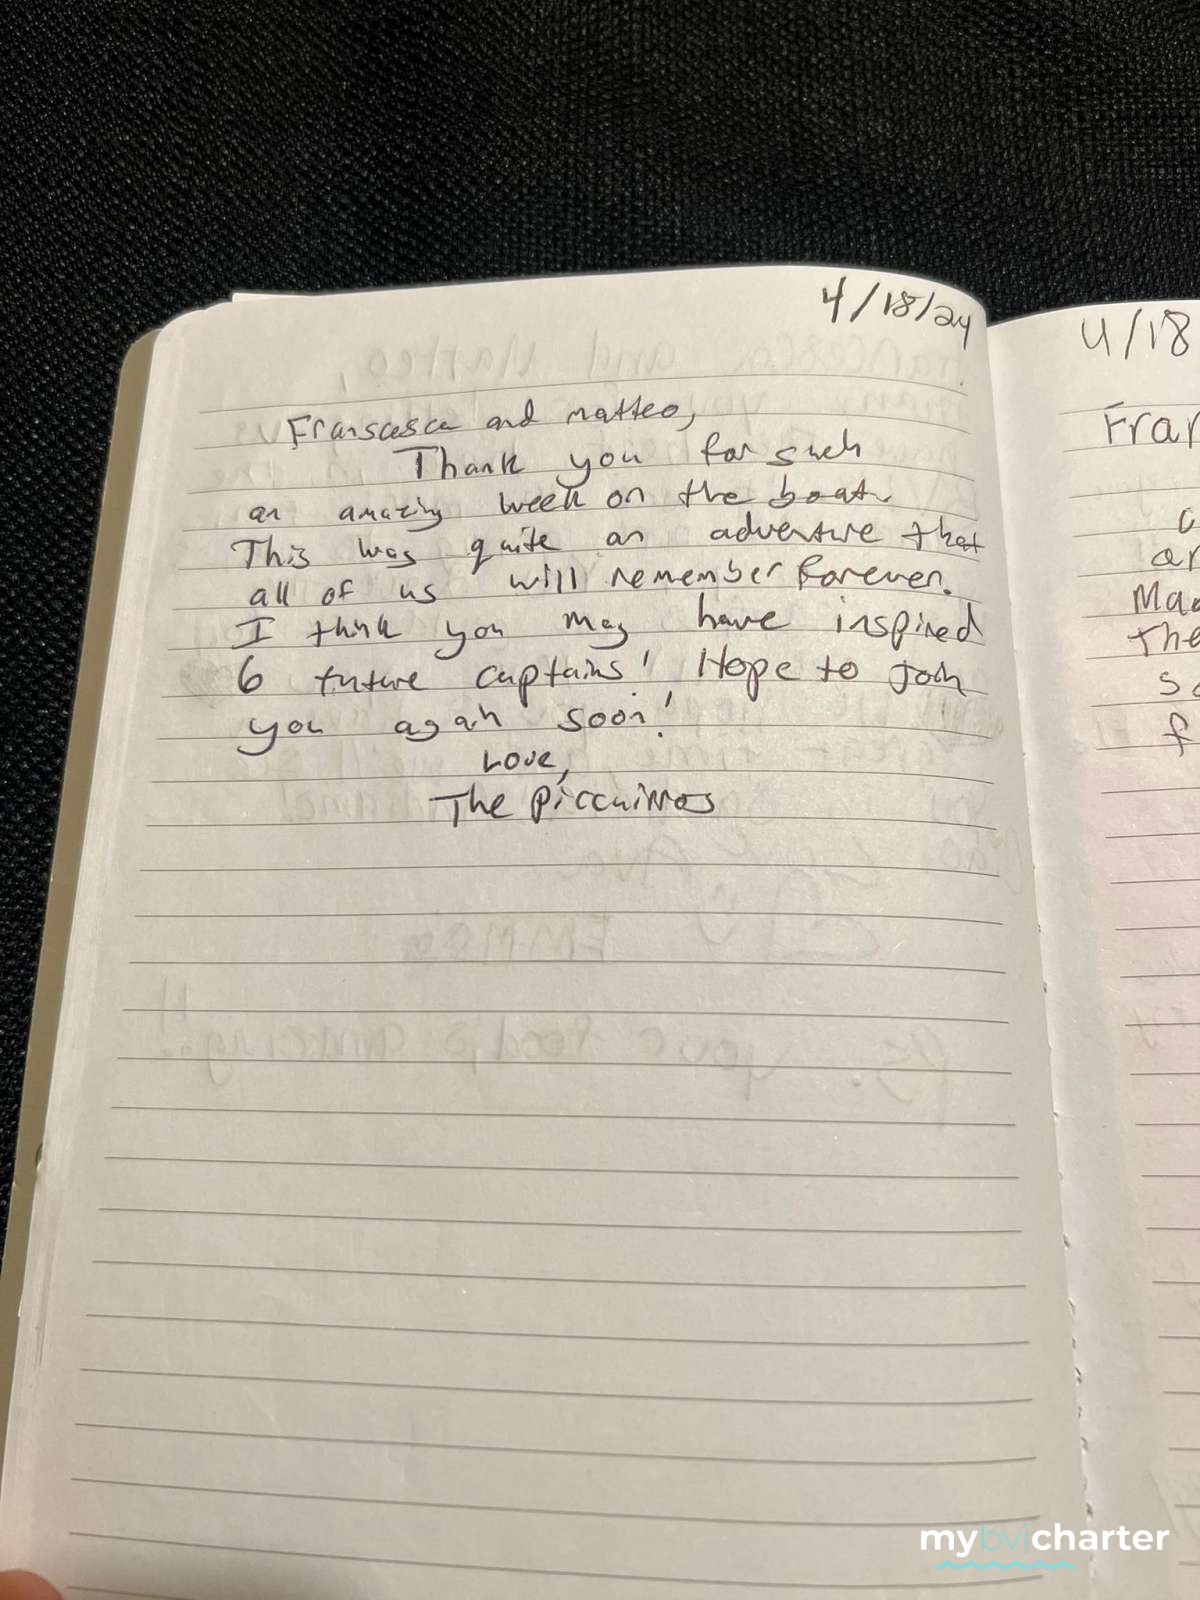 4/18/24
Fransesca and matteo,
Thank you for such
an amazing week on the boat.
This was quite an adventure that
all of us will remember forever.
I think you may have inspired
6 future captains! Hope to join
you again soon!
Love,
The
4/18
Frar
the
f
mybvicharter